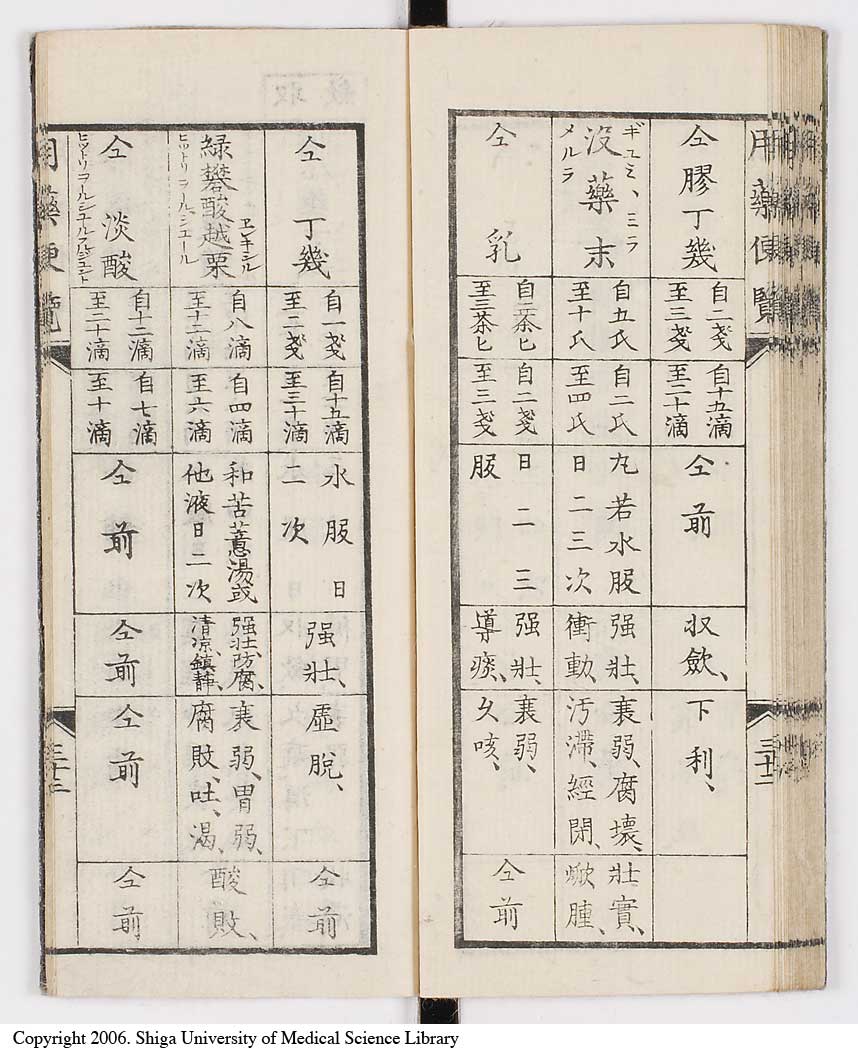 用藥便覽
三十二
仝膠丁幾
自二戔
至三戔
自十五滴
至二十滴
仝前
収斂、
下利、
ギュミ、ミラ
没藥末
メルラ
自五氏
至十氏
自二氏
至四氏
丸若水服
日二三次
强壮、
衝動、
衰弱、腐壊、
汚滞、經閉、
壮實、
焮腫、
仝乳
自二茶匕
至三茶匕
自二戔
至三戔
日二三
服
强壮、
導痰、
衰弱、
久咳、
仝前
仝丁幾
自一戔
至二戔
自十五滴
至三十滴
水服日
二次
强壮、
虚脱、
仝前
ヱキシル
緑礬酸越栗
ヒットリヲール、シュール
自八滴
至十二滴
自四滴
至六滴
和苦薏湯或
他液日二次
强壮、防腐、
清凉、鎮静、
衰弱、胃弱、
腐敗、吐、渇、
酸敗、
仝淡酸
自十二滴
至二十滴
自七滴
至十滴
仝前
仝前
仝前
仝前
用藥便覽
三十二
Copyright 2006. Shiga University of Medical Science Library